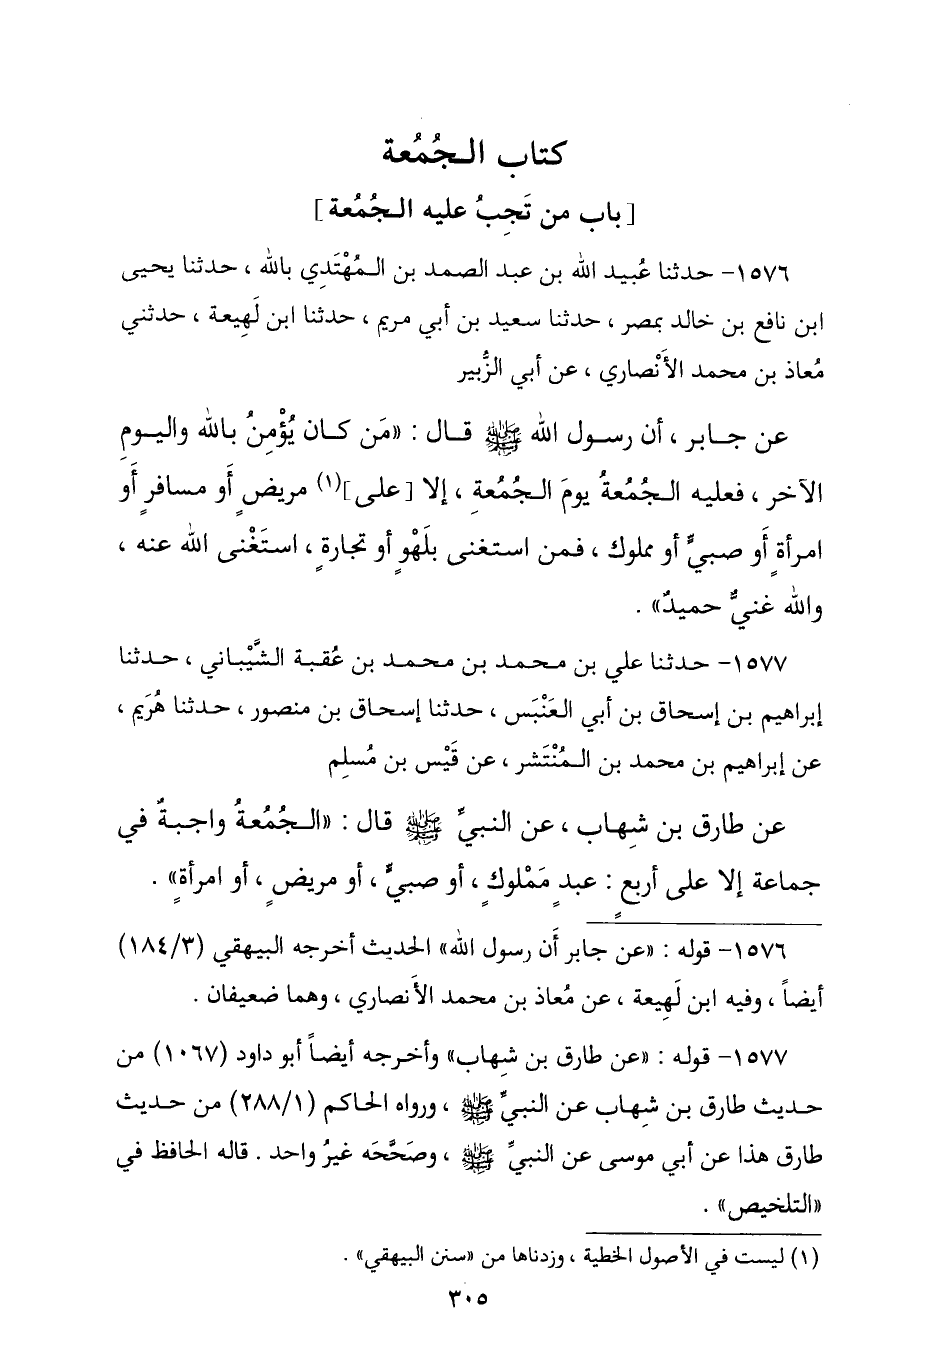 كتاب الـجُمُعة
[باب من تَجِبُ عليه الـجُمُعة]
١٥٧٦- حدثنا عُبيد الله بن عبد الصمد بن الـمُهْتَدِي بالله ، حدثنا يحيى
ابن نافع بن خالد بمصر ، حدثنا سعيد بن أبي مريم ، حدثنا ابن لَهِيعة ، حدثني
مُعاذ بن محمد الأنْصاري ، عن أبي الزُّبير
عن جـابر ، أن رسـول الله ﷺ قـال : «مَن كـان يُؤْمِنُ بـالله واليـومِ
الآخر ، فعليه الـجُمُعةُ يومَ الـجُمُعةِ ، إلا [على](١) مريضٍ أو مسافرٍ أو
امرأةٍ أو صبيٍّ أو مملوك ، فـمن استغنى بلَهْوٍ أو تجارةٍ ، استَغْنى الله عنه ،
والله غنيٌّ حميدٌ» .
١٥٧٧- حدثنا علي بن محمد بن محمد بن عُقبة الشَّيْباني ، حدثنا
إبراهيم بن إسحاق بن أبي العَنْبَس ، حدثنا إسحاق بن منصور ، حدثنا هُرَيم ،
عن إبراهيم بن محمد بن الـمُنْتَشر ، عن قَيْس بن مُسلِم
عن طارق بن شِهاب ، عن النبيِّ ﷺ قال : «الـجُمُعةُ واجبةٌ في
جماعة إلا على أربعٍ : عبدٍ مَمْلوكٍ ، أو صبيٍّ ، أو مريضٍ ، أو امرأةٍ» .
١٥٧٦- قوله : «عن جابر أن رسول الله» الحديث أخرجه البيهقي (١٨٤/٣)
أيضاً ، وفيه ابن لَهِيعة ، عن مُعاذ بن محمد الأنصاري ، وهما ضعيفان .
١٥٧٧- قوله : «عن طارق بن شِهاب» وأخرجه أيضاً أبو داود (١٠٦٧) من
حديث طارق بن شهاب عن النبيِّ ﷺ ، ورواه الحاكم (٢٨٨/١) من حديث
طارق هذا عن أبي موسى عن النبيِّ ﷺ ، وصَحَّحَه غيرُ واحد . قاله الحافظ في
«التلخيص» .
(١) ليست في الأصول الخطية ، وزدناها من «سنن البيهقي» .
٣٠٥